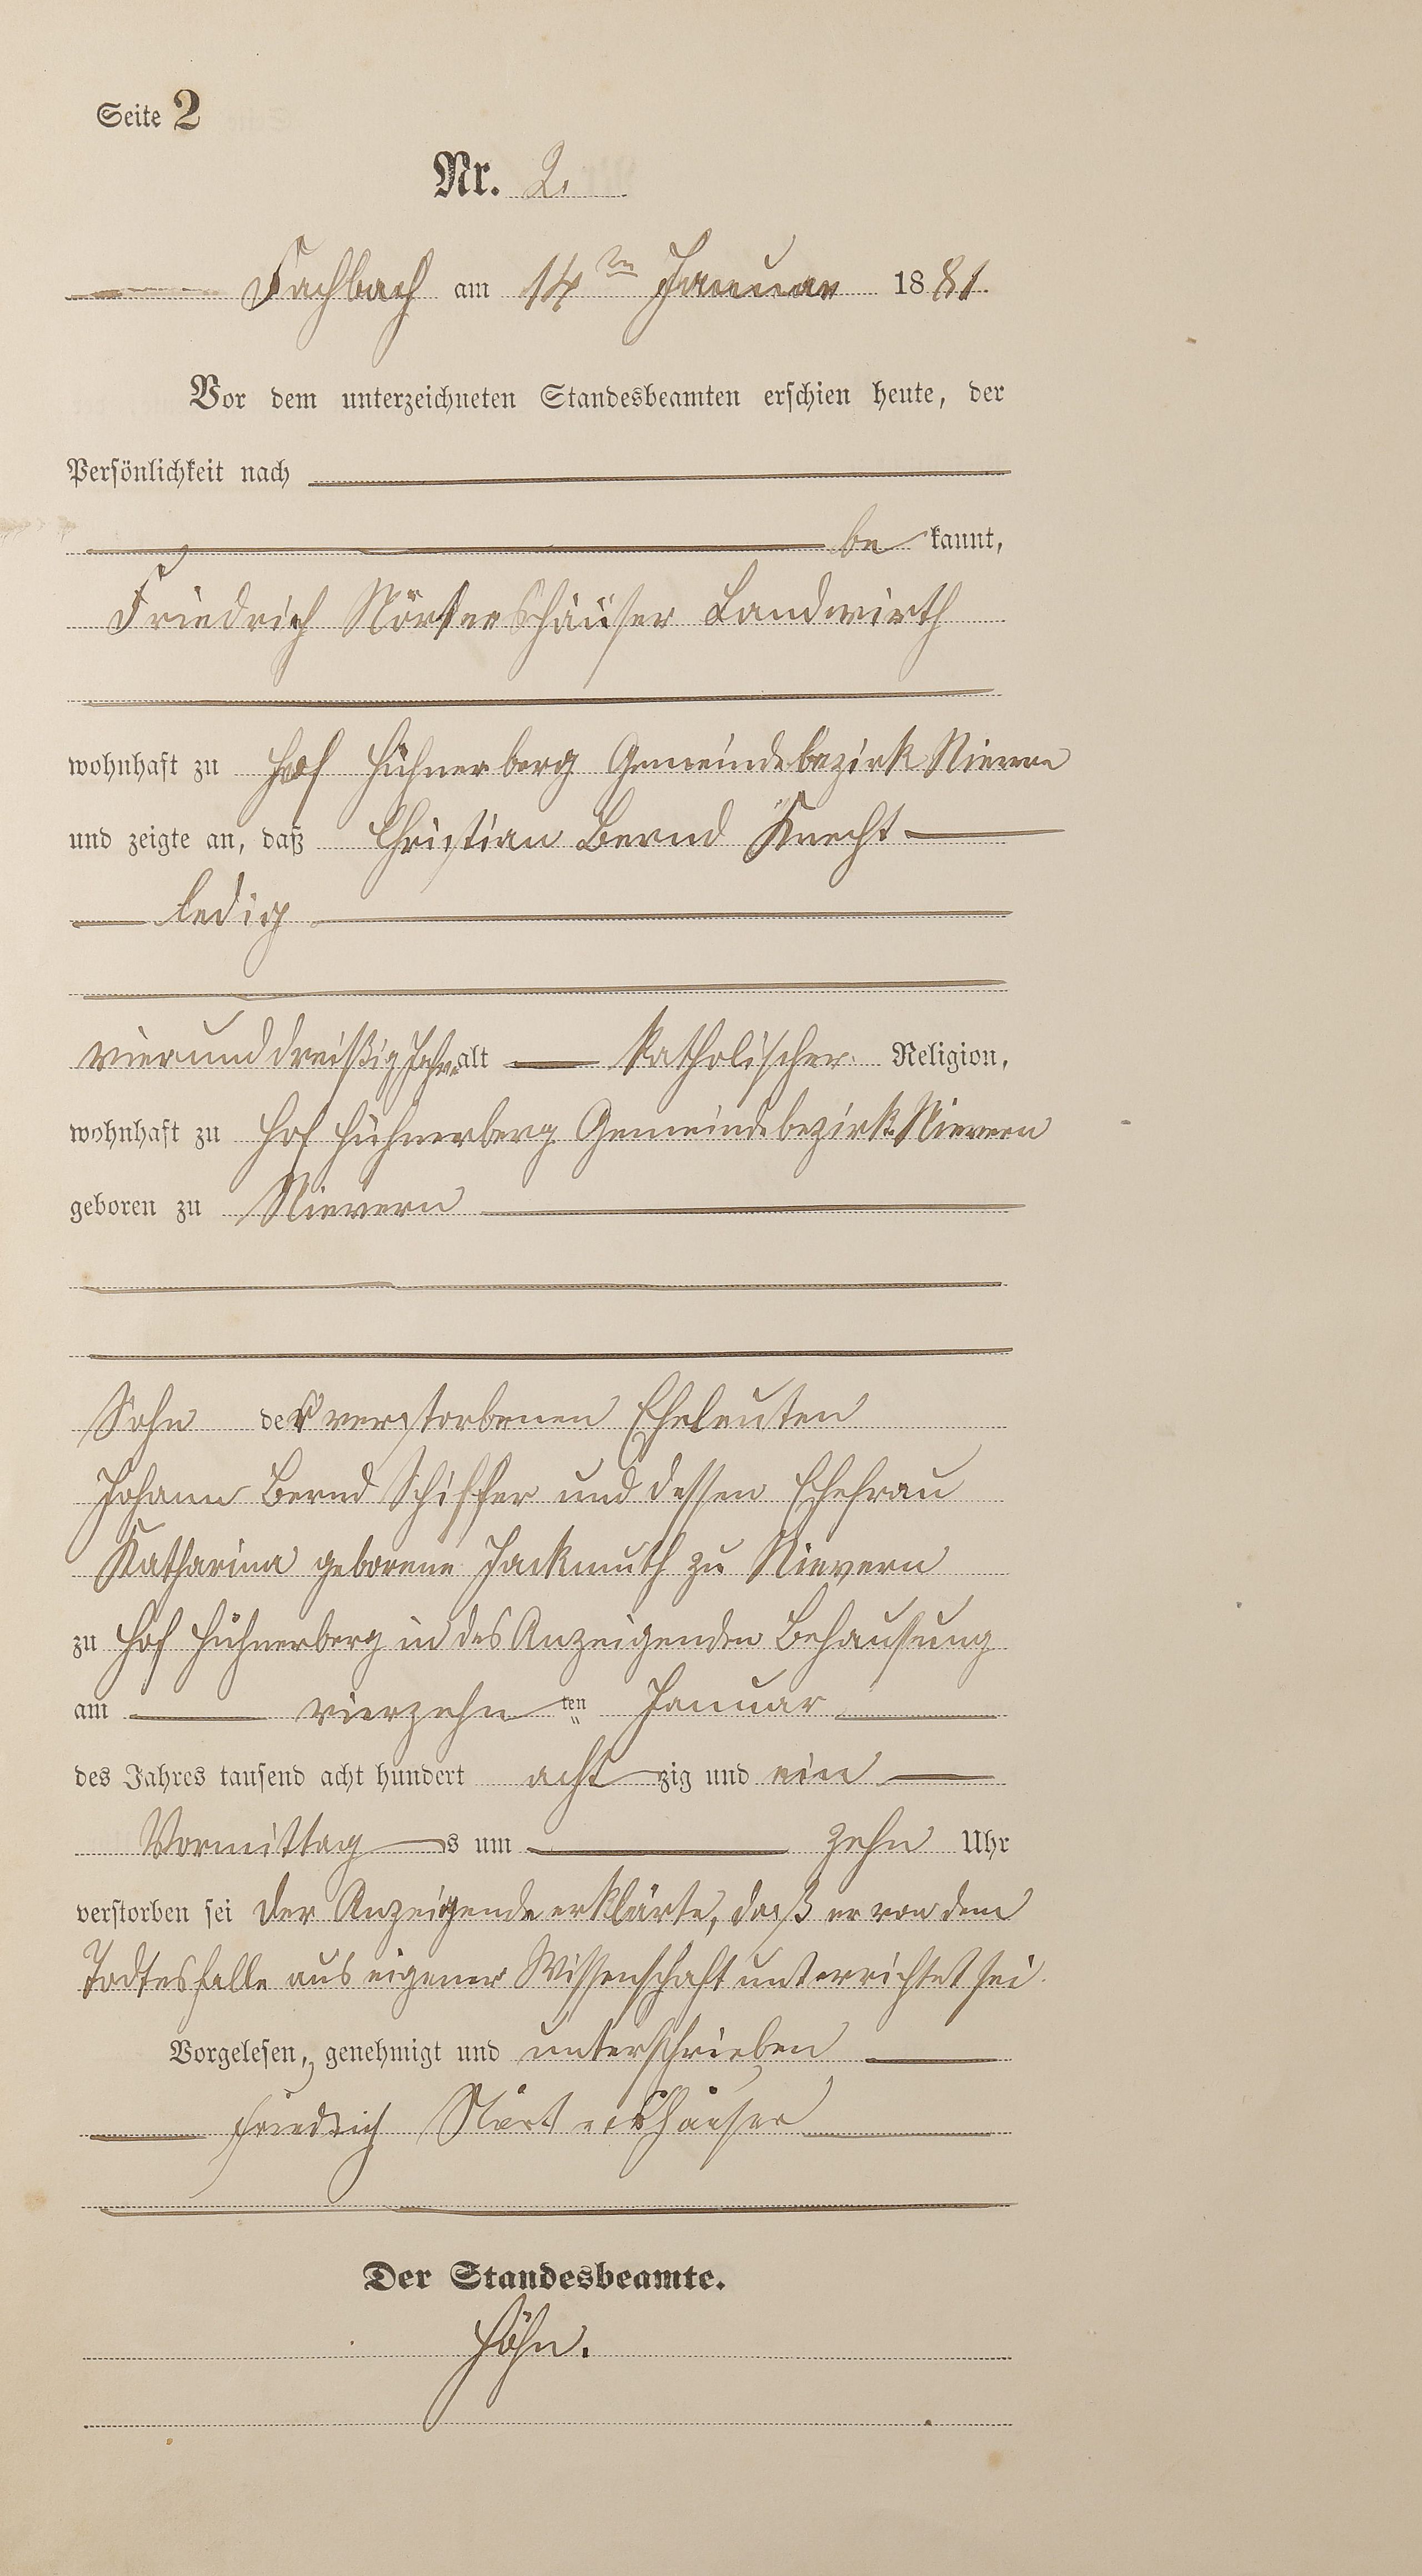 Seite 2
Nr. 2.
Fachbach am 14ten Januar 1881.
Vor dem unterzeichneten Standesbeamten erschien heute, der
Persönlichkeit nach
be kannt,
Friedrich Nörtershäuser Landwirth
wohnhaft zu Hof Hühnerberg Gemeindebezirk Nievern
und zeigte an, daß Christian Bernd Knecht
ledig
vierunddreißig Jahre alt katholischer Religion,
wohnhaft zu Hof Hühnerberg Gemeindebezirk Nievern
geboren zu Nievern
Sohn der verstorbenen Eheleuten
Johann Bernd Schiffer und dessen Ehefrau
Katharina geborene Jackmuth zu Nievern
zu Hof Hühnerberg in des Anzeigenden Behausung
am vierzehn ten Januar
des Jahres tausend acht hundert acht zig und ein
Vormittag s um zehn Uhr
verstorben sei der Anzeigende erklärte, daß er von dem
Todtesfalle aus eigener Wissenschaft unterrichtet sei.
Vorgelesen, genehmigt und unterschrieben
Friedrich Nörtershäuser
Der Standesbeamte.
Höhn.